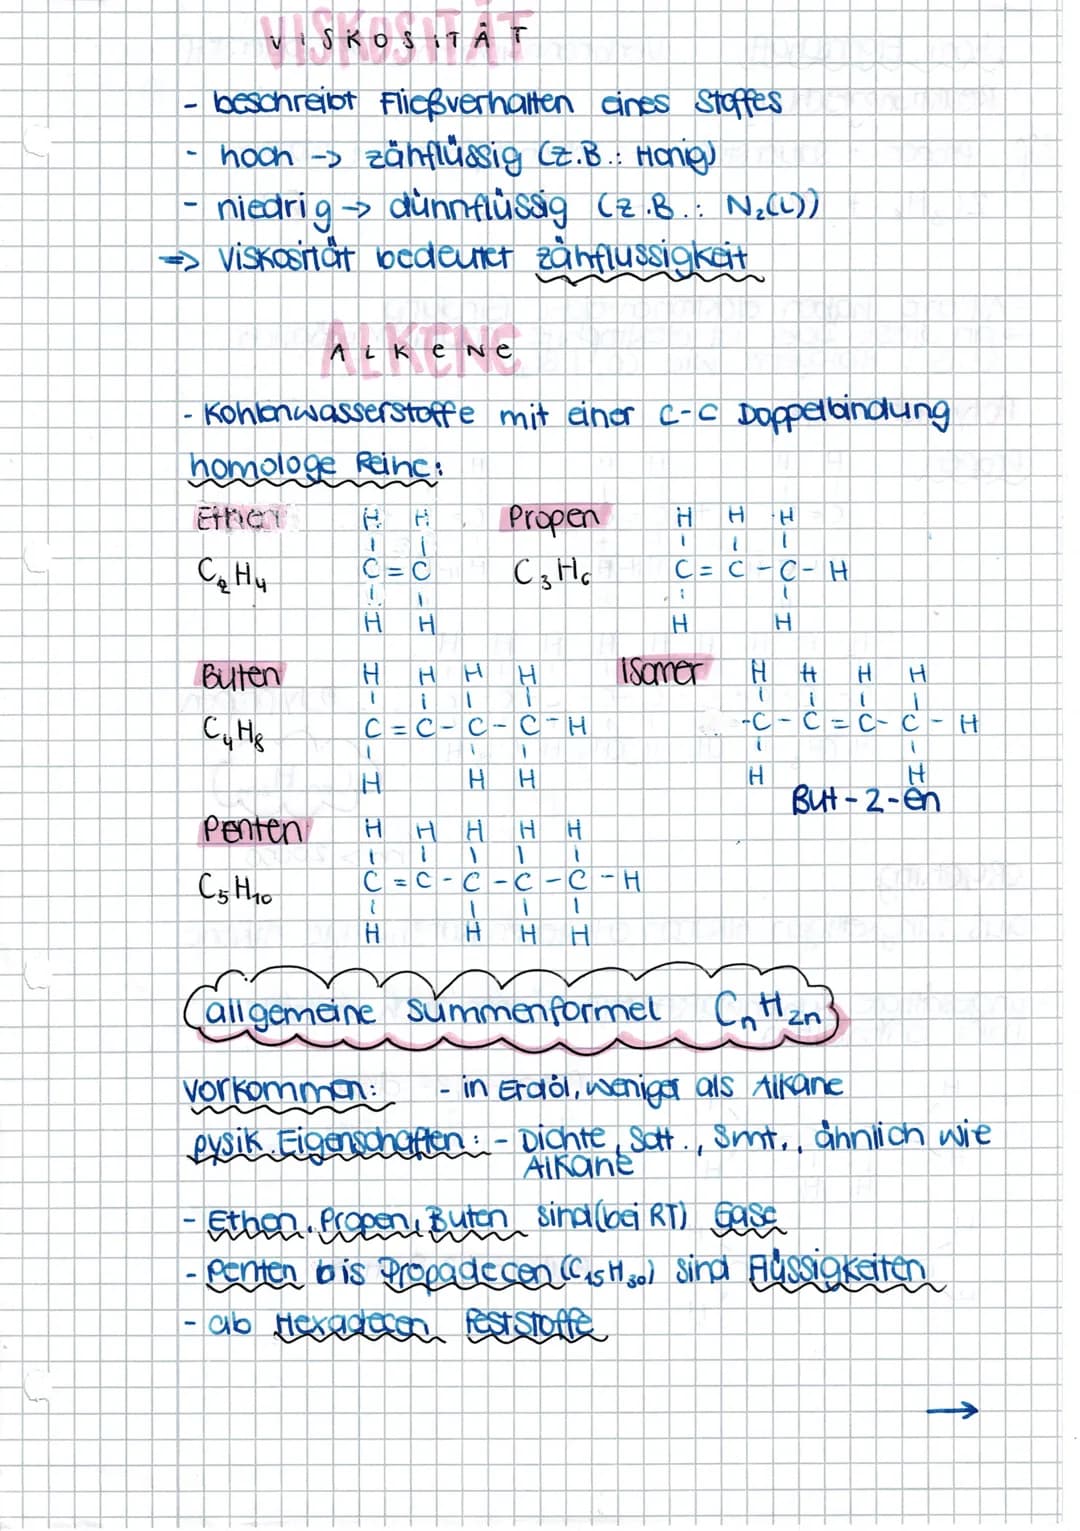 VISKOSITÄT
- beschreibt Fließverhalten eines Stoffes
- hoch -> zähflüssig (z.B.: Honig)
- niedrig -> dünnflüssig (z.B.: N₂(L))
=> Viskosität bedeutet zähflussigkeit
ALKENE
- Kohlenwasserstoffe mit einer C-C Doppelbindung
homologe Reihe:
Ethen H H Propen H H H
C₂H₄ C = C C₃H₆ C = C - C - H
H H H H
Buten H H H H Isomer H H H H
C₄H₈ C = C - C - C - H -C - C = C - C - H
H H H H H
But-2-en
Penten H H H H H
C₅H₁₀ C = C - C - C - C - H
H H H H
allgemeine Summenformel CₙH₂ₙ
Vorkommen: - in Erdöl, weniger als Alkane
pysik. Eigenschaften: - Dichte, Sdt., Smt., ähnlich wie
Alkane
- Ethen, Propen, Buten sind (bei RT) Gase
- Penten bis Propadecen (C₁₅H₃₀) sind Flüssigkeiten
- ab Hexadecen Feststoffe
→